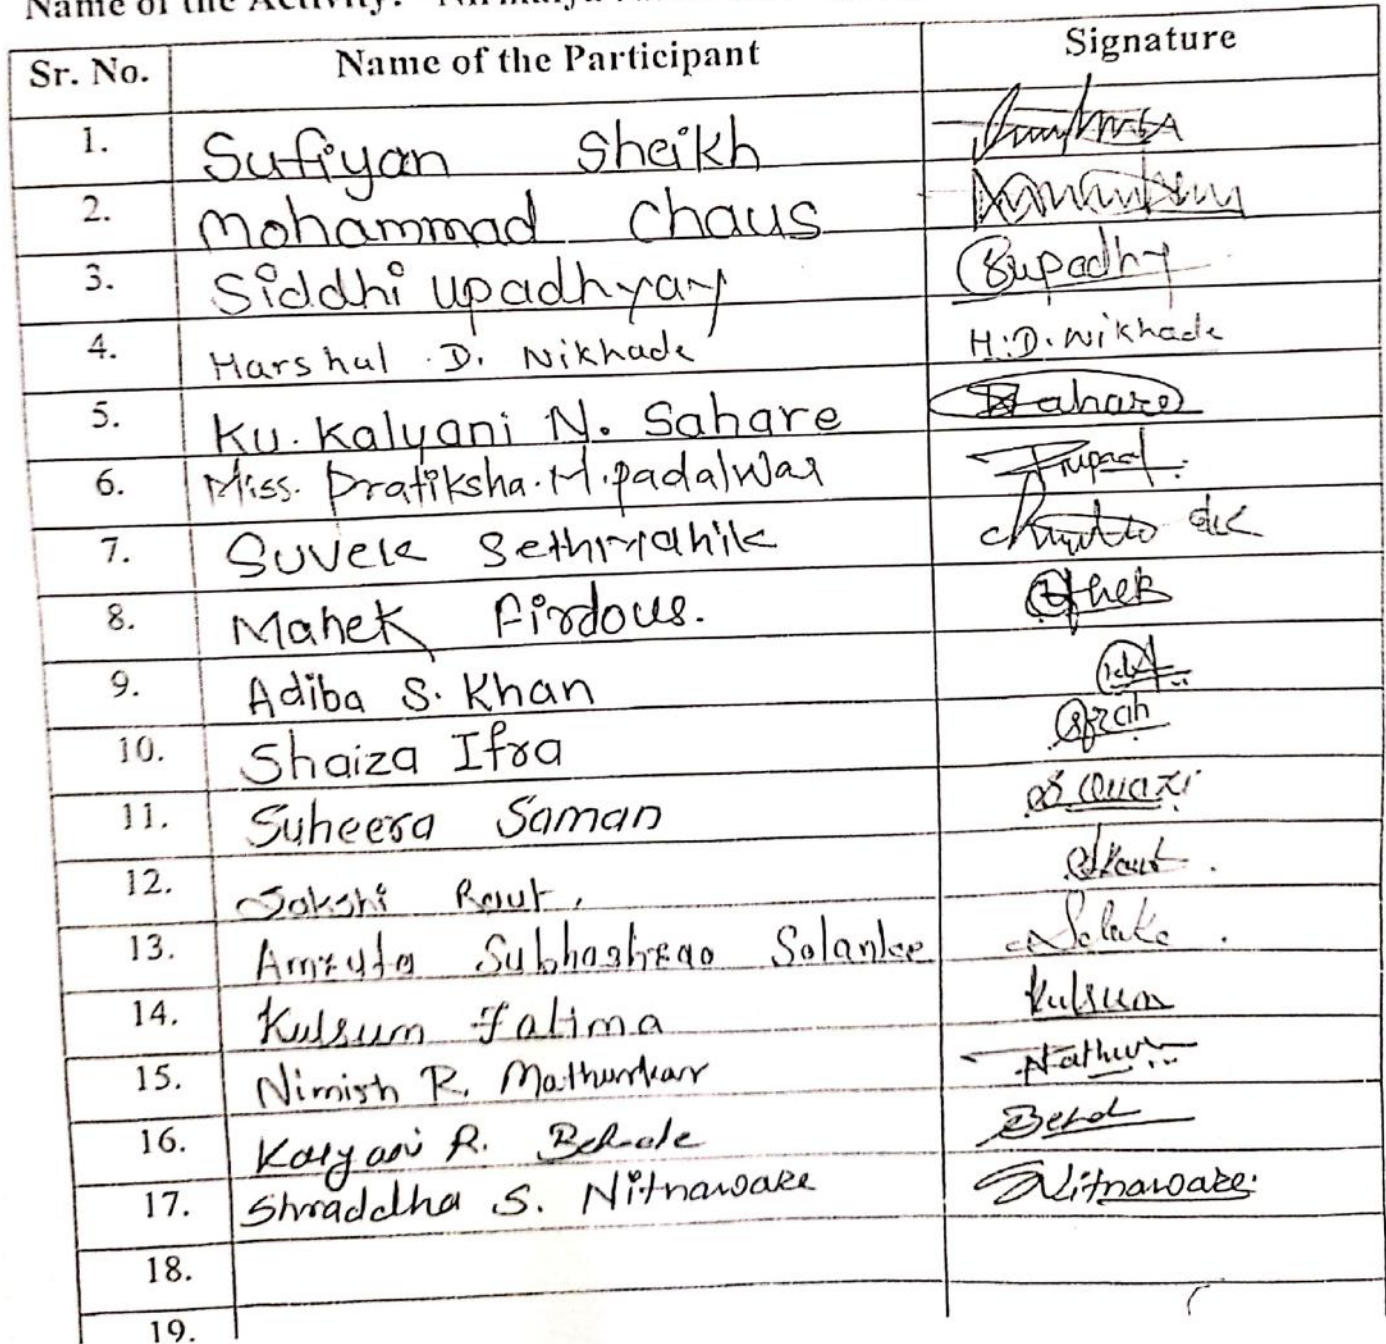 Name of the Activity:
Sr. No. Name of the Participant Signature
1. Sufiyan Sheikh
2. Mohammad Chaus
3. Siddhi upadhyay Supadhy
4. Harshal D. Nikhade H.D. Nikhade
5. Ku. Kalyani N. Sahare Sahare
6. Miss. Pratiksha.M.padalwar
7.
8. Mahek Firdous.
9. Adiba S. Khan
10. Shaiza Ifra
11. Suheera Saman S Quazi
12. Sakshi Raut.
13. Amruta Subhashrao Solanke
14. Kulsum Fatima Kulsum
15. Nimish R. Mathurkar
16. Kalyani R.
17. Shraddha S. Nitnaware Nitnaware.
18.
19.